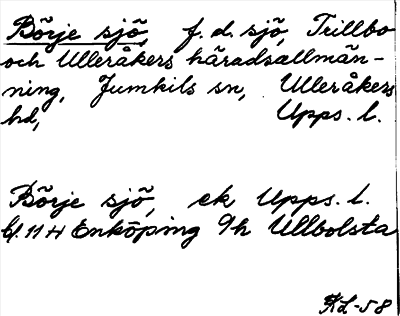 Börje sjö, f.d. sjö, Trillbo
och Ulleråkers häradsallmän-
ning, Jumkils sn, Ulleråkers
hd, Upps. l.
Börje sjö, ek Upps. l.
bl. 11 H Enköping 9h Ullbolsta
KL-58